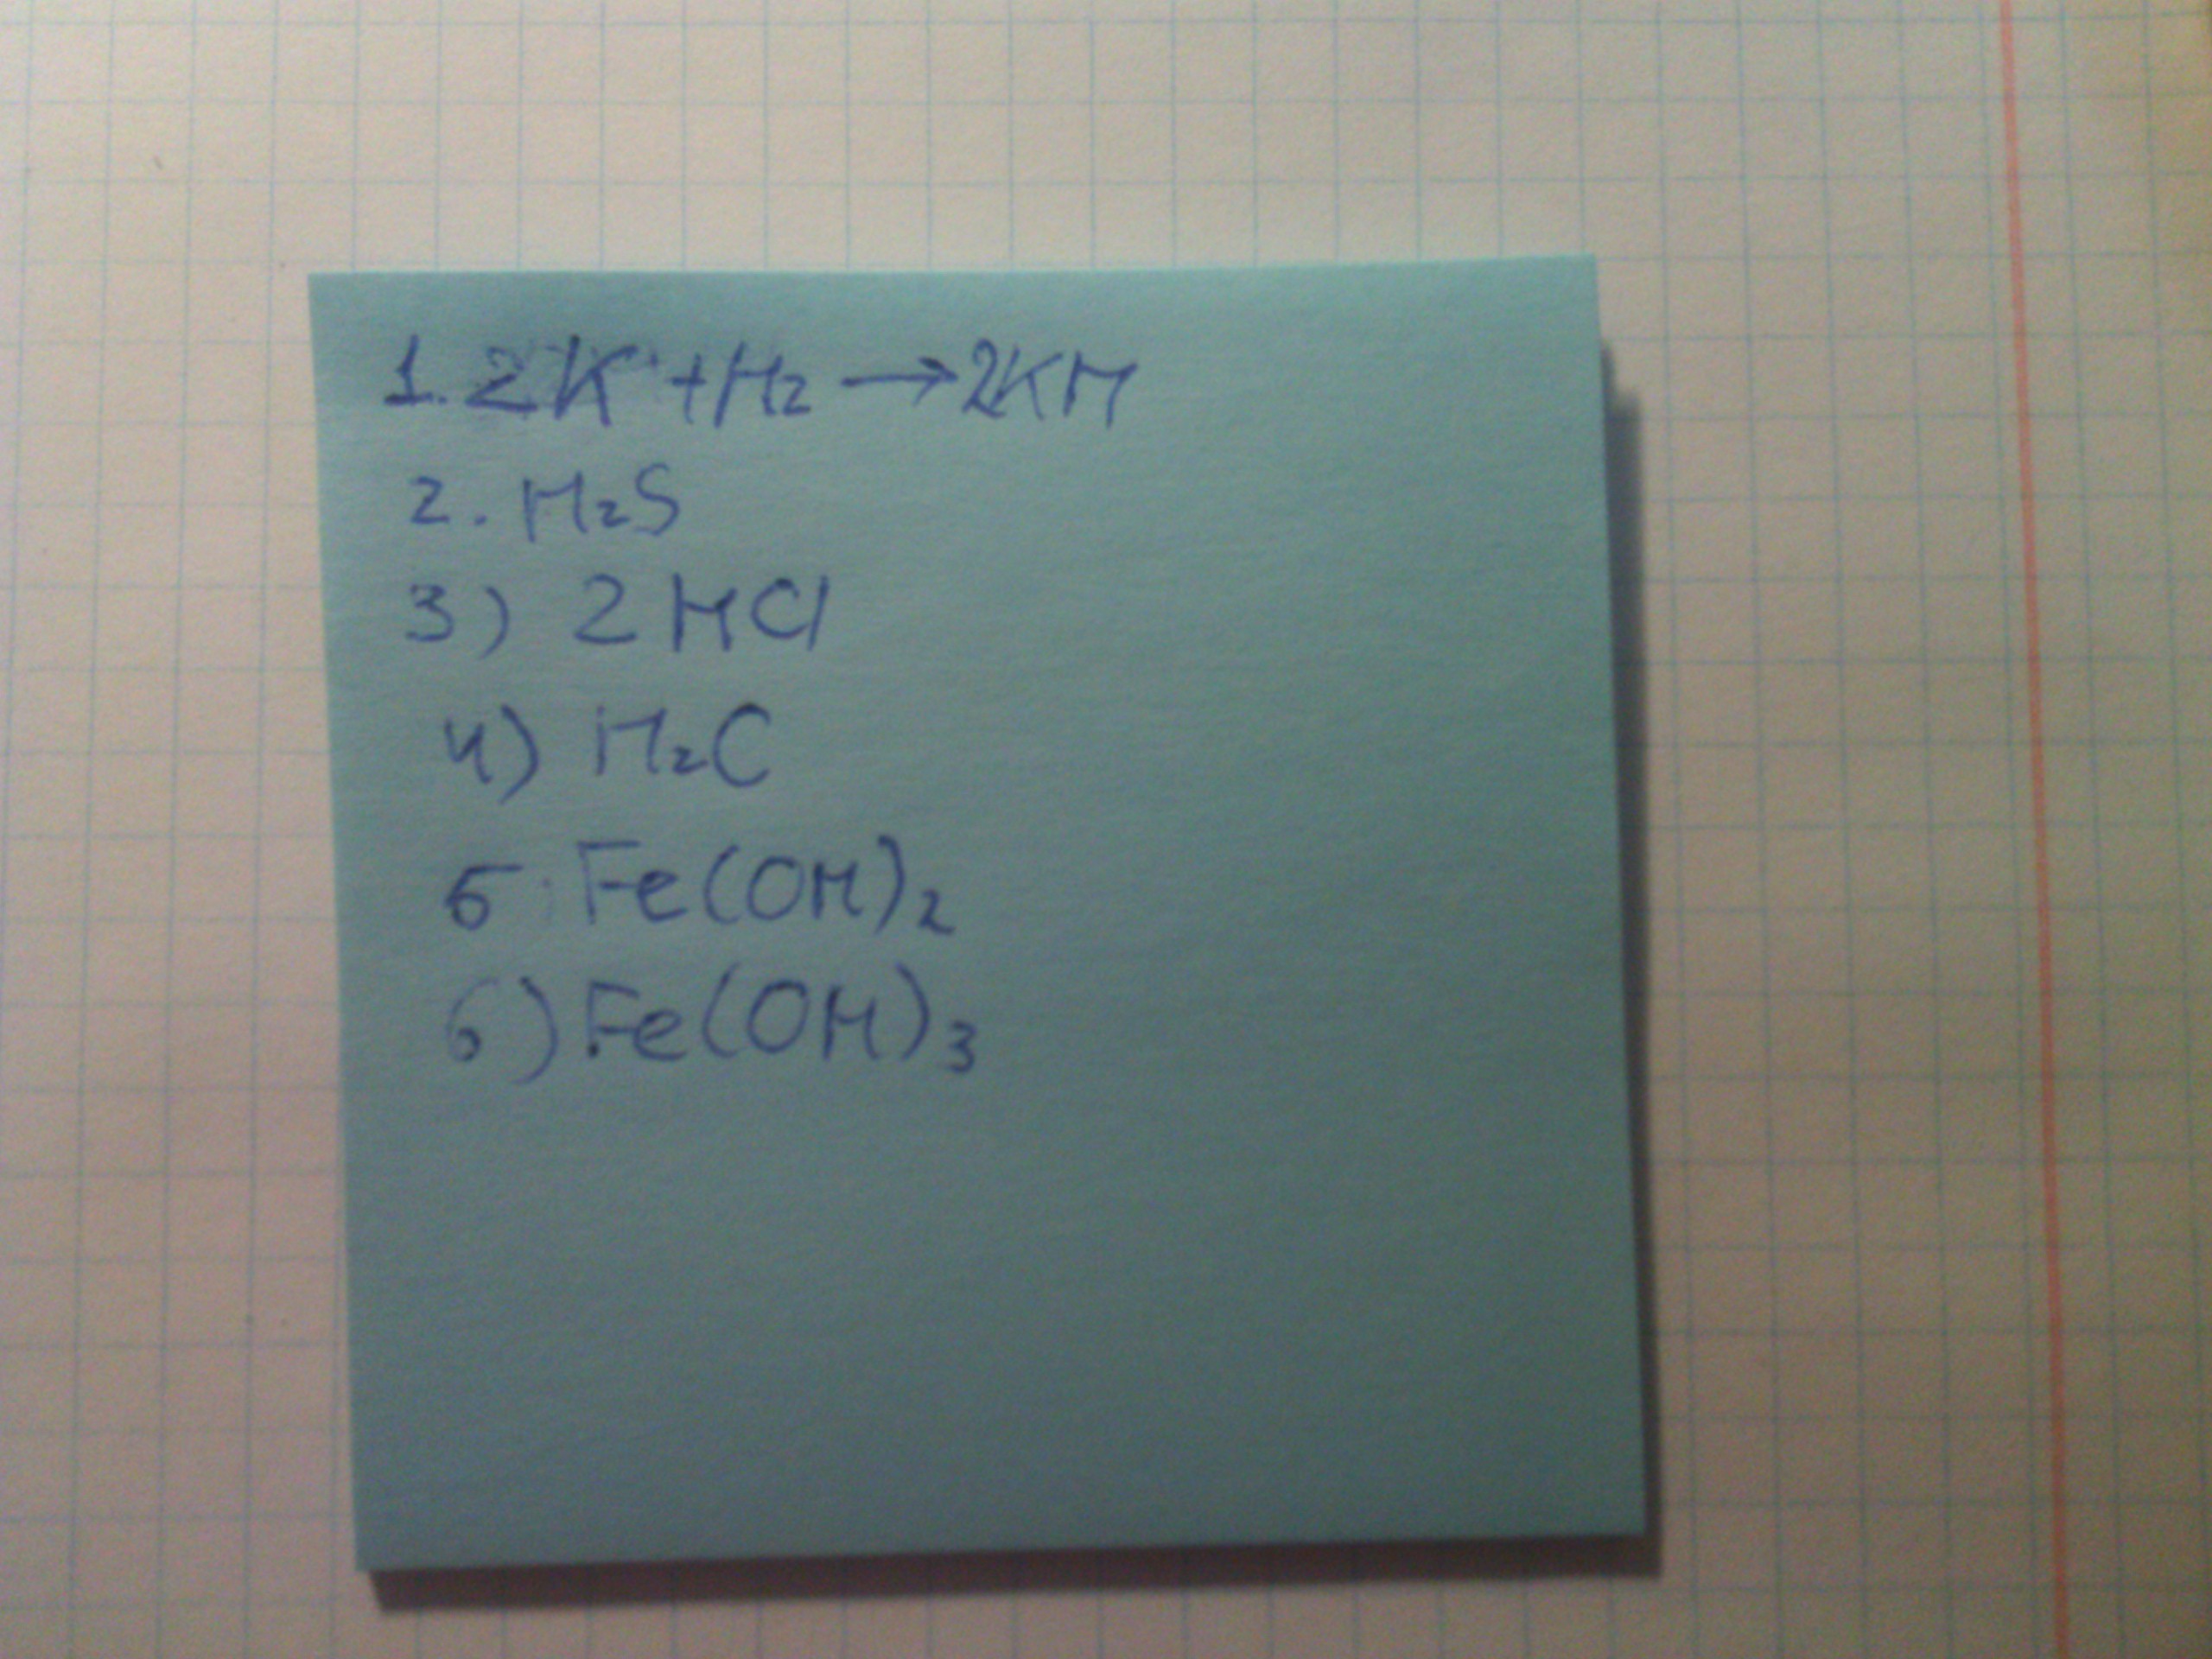 1. 2K + H₂ → 2KH
2. H₂S
3) 2HCl
4) H₂C
5. Fe(OH)₂
6) Fe(OH)₃